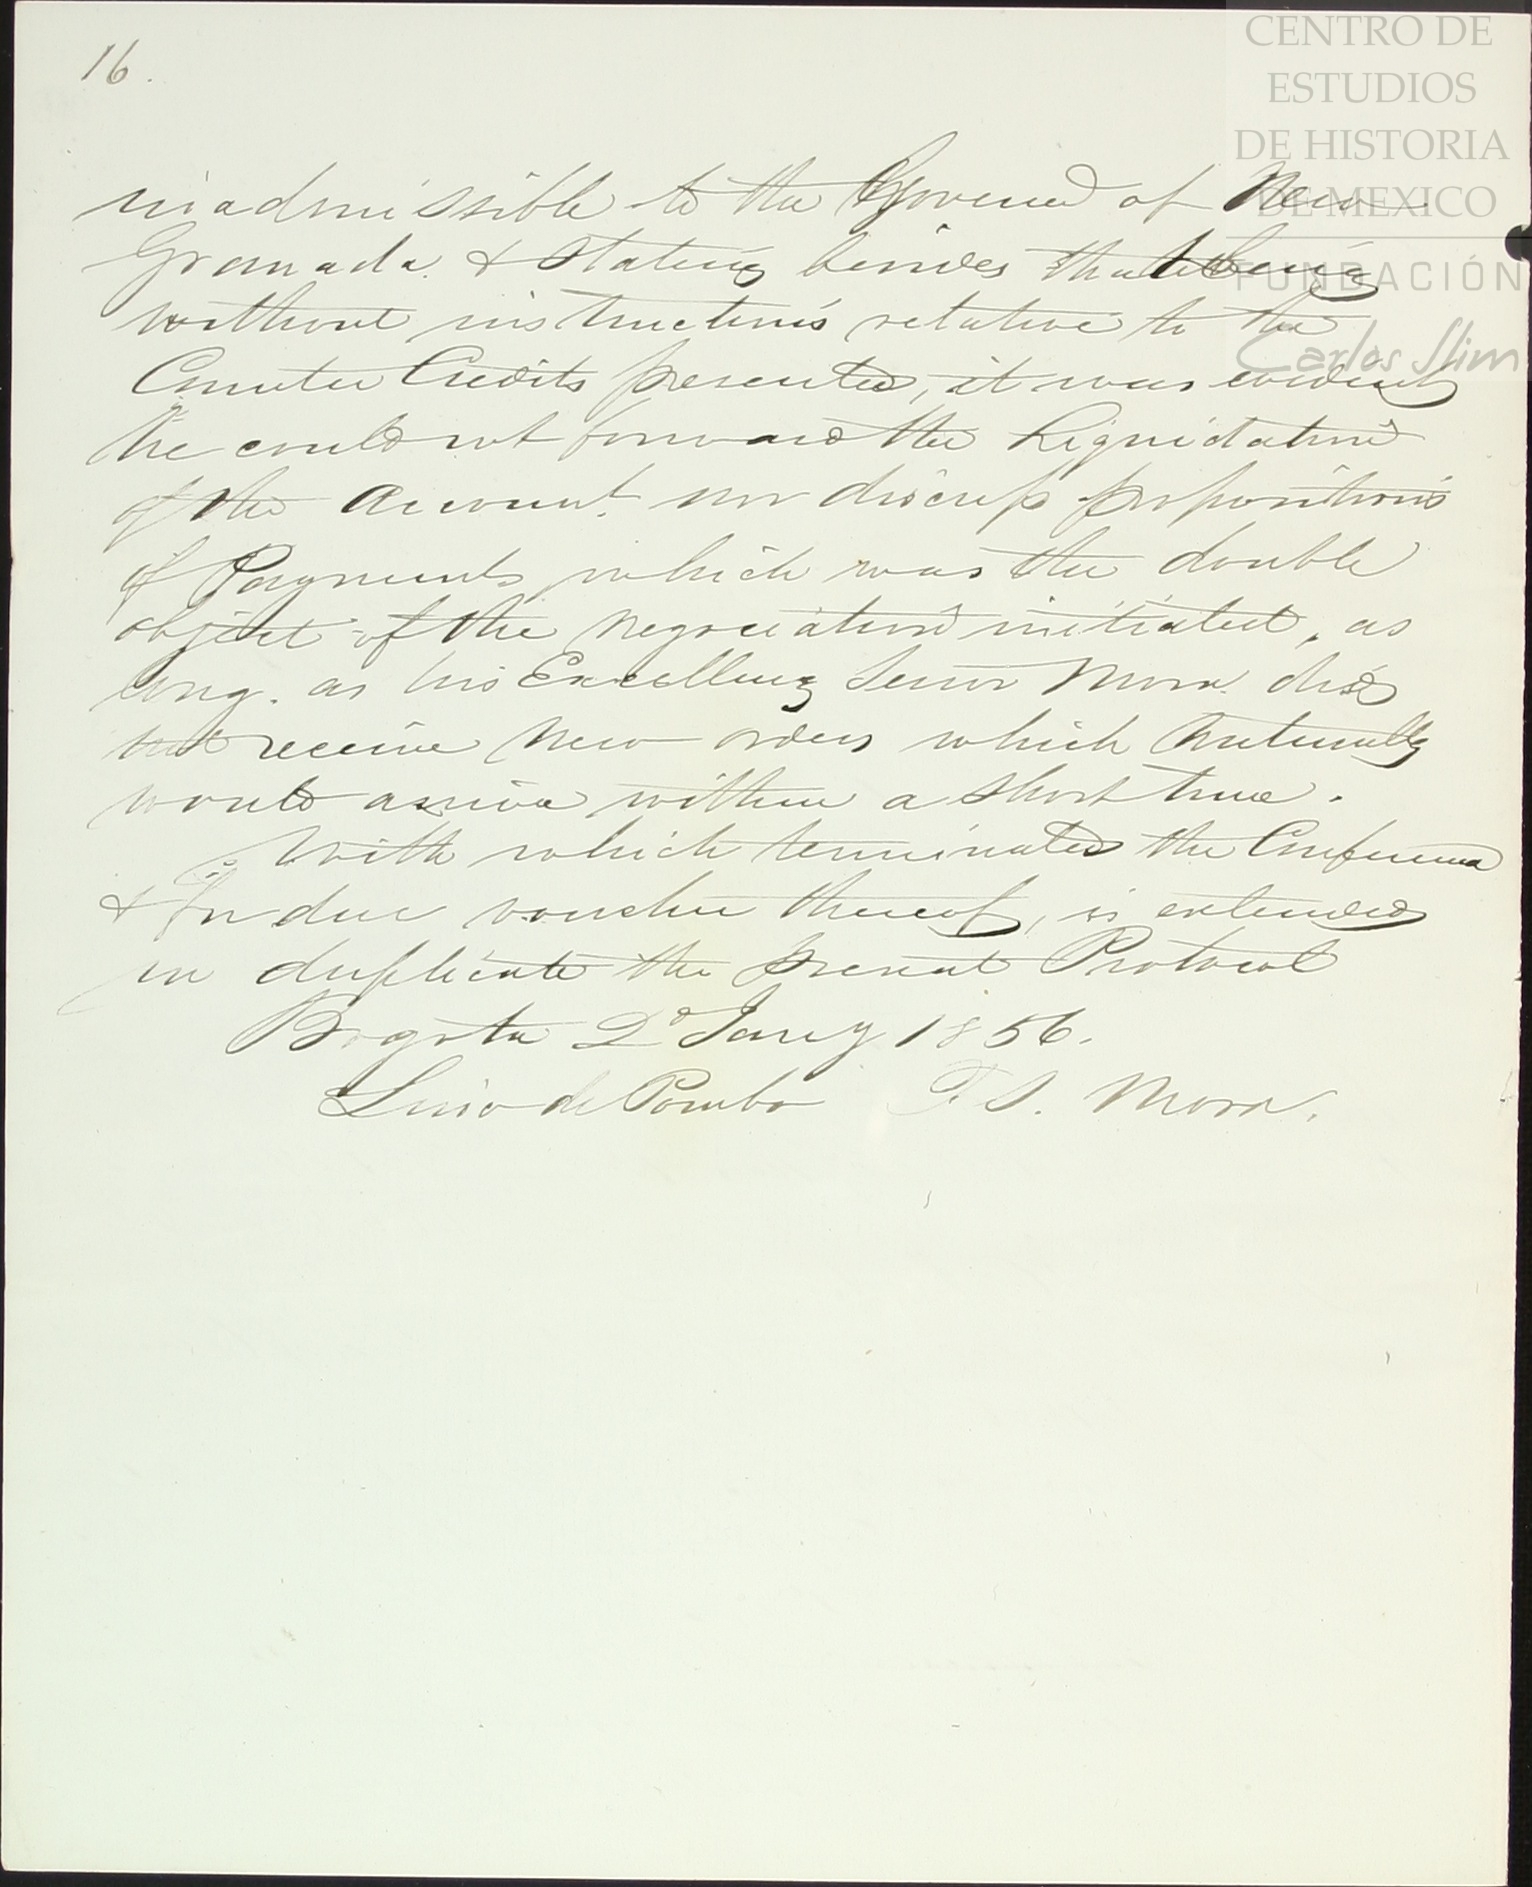 16.
CENTRO DE
ESTUDIOS
DE HISTORIA
DE MEXICO
FUNDACIÓN
Carlos Slim
inadmissible to the Governmt of New
Granada. & stating besides that being
without instructions relative to the
Counter Credits presented, it was evident
he could not forward the Liquidation
of the Account. nor discuss propositions
of Payments which was the double
object of the negociation initiated, as
long. as his Excellency Senor Mora. did
not receive new orders which naturally
would arrive within a short time.
With which terminated the Conference
& In due voucher thereof, is extended
in duplicate the present Protocol
Bogota 2d Jany 1856.
Lino de Pombo F. S. Mora.